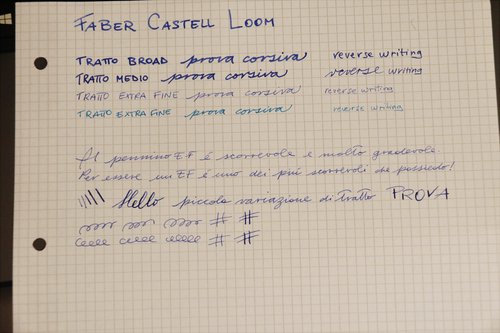 FABER CASTELL LOOM
TRATTO BROAD prova corsiva reverse writing
TRATTO MEDIO prova corsiva reverse writing
TRATTO EXTRA FINE prova corsiva reverse writing
TRATTO EXTRA FINE prova corsiva reverse writing
Il pennino EF é scorrevole e molto gradevole.
Per essere un EF é uno dei piú scorrevoli che possiedo!
Hello piccola variazione di tratto PROVA